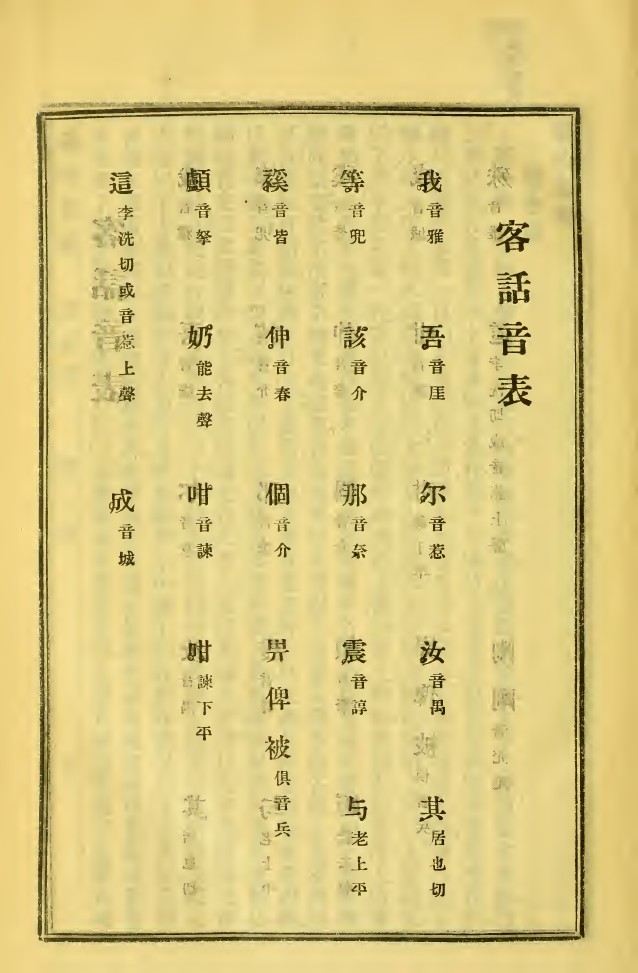 客話音表
我音雅 吾音厓 尔音惹 汝音禺 其居也切
等音兜 該音介 那音奈 震音諄 与老上平
奚音皆 伸音春 個音介 畀俾被俱音兵
顱音拏 奶能去聲 咁音諫 咁諫下平
這李洗切或音惹上聲 成音城